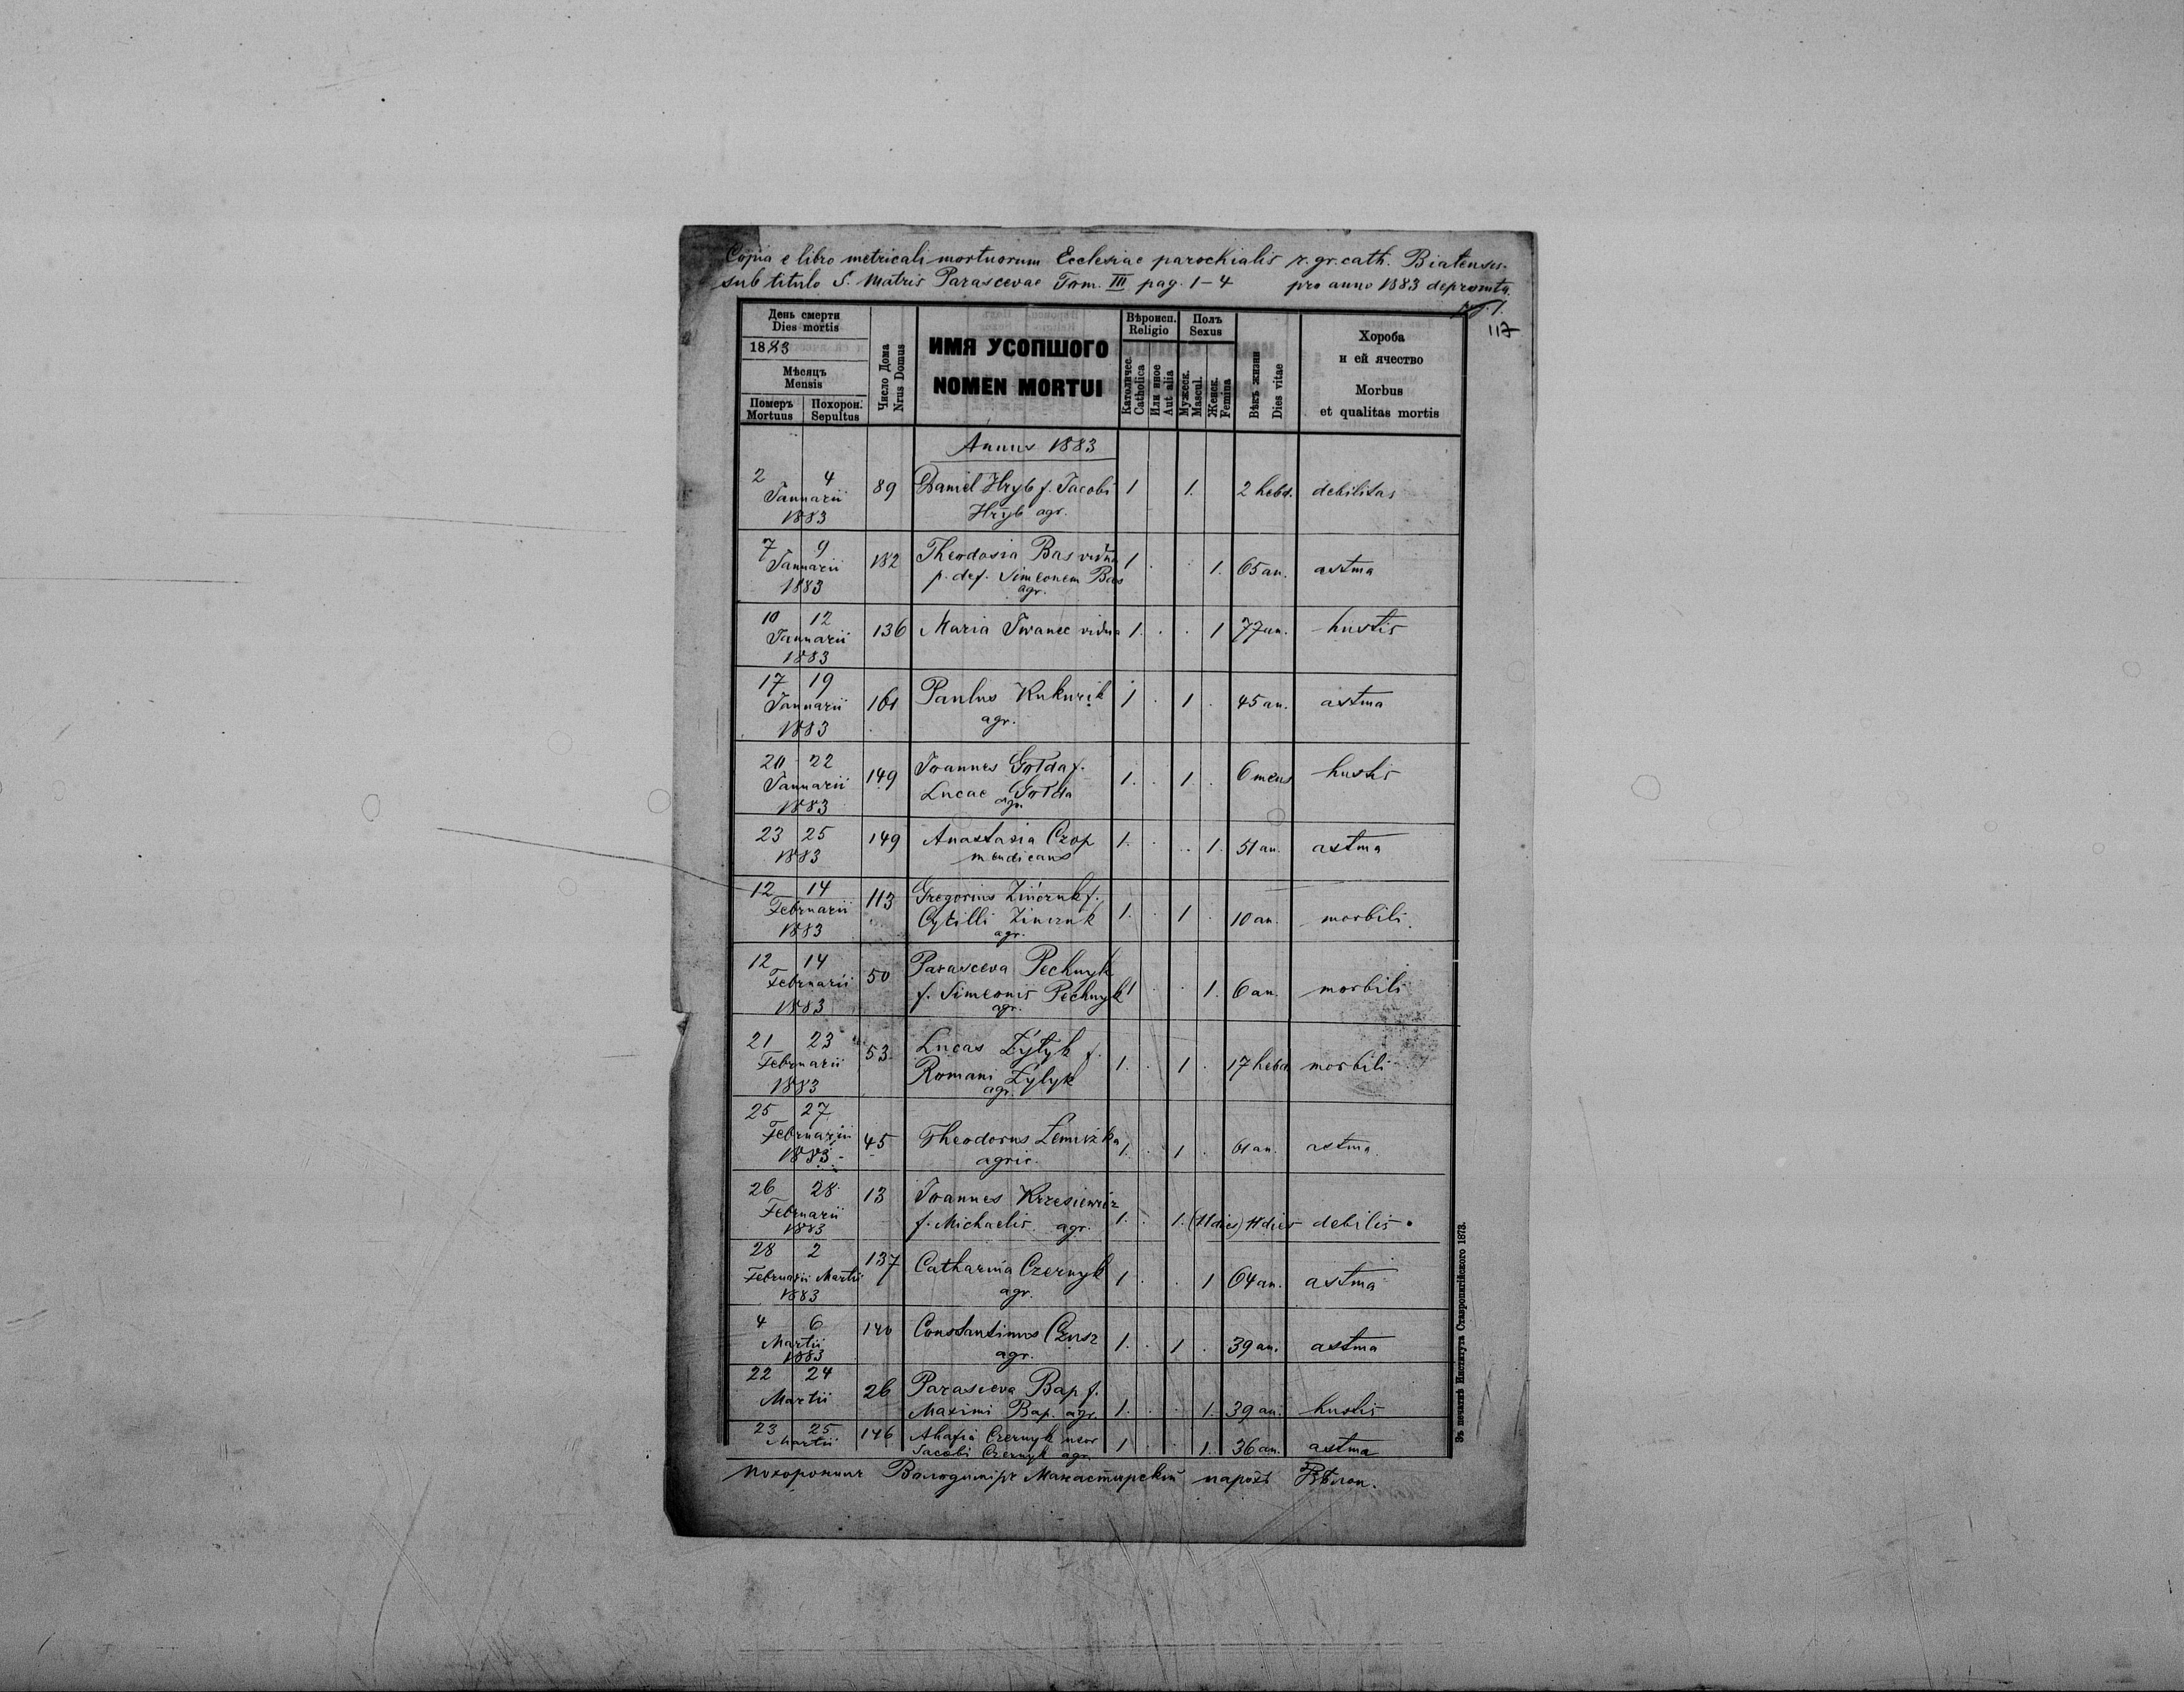 Copia e libro metricali mortuorum Ecclesiae parochialis r. gr. cath. Biatensis.
sub titulo S. Matris Parascevae Tom. III pag. 1-4 pro anno 1883 depromta.
pag. 1.
117
День смерти
Dies mortis
1883
Мѣсяцъ
Mensis
Померъ Похорон.
Mortuus Sepultus
Число Дома
Nrus Domus
ИМЯ УСОПШОГО
NOMEN MORTUI
Вѣроисп.
Religio
Католичес.
Catholica
Или иное
Aut alia
Полъ
Sexus
Мужеск.
Mascul.
Женск.
Femina
Вѣкъ жизни
Dies vitae
Хороба
и ей ячество
Morbus
et qualitas mortis
Annus 1883
2 4 89 Daniel Hryb f. Jacobi 1 1. 2 hebd. debilitas
Januarii Hryb agr.
1883
7 9 182 Theodosia Bas vidua 1 . . 1. 65 an. astma
Januarii p. def. Simeonem Bas
1883 agr.
10 12 136 Maria Iwanec vidua 1. . . 1 77 an. hustis
Januarii
1883
17 19 161 Paulus Kukurik 1 . 1 . 45 an. astma
Januarii agr.
1883
20 22 149 Joannes Gołda f. 1. . 1 . 6 mens hustis
Januarii Lucae Gołda
1883 agr.
23 25 149 Anastasia Czop 1. . . 1. 51 an. astma
1883 mendicans
12 14 113 Gregorius Zińczuk f. 1. . 1 . 10 an. morbili
Februarii Cyrilli Zinczuk
1883 agr.
12 14 50 Parasceva Pechnyk 1 . . 1. 6 an. morbili
Februarii f. Simeonis Pechnyk
1883 agr.
21 23 53 Lucas Żyłyk f. 1. . 1 . 17 hebd. morbili
Februarii Romani Żyłyk
1883 agr.
25 27 45 Theodorus 1. . 1 . 61 an. astma
Februarii agric.
1883
26 28 13 Joannes Krzesiewicz 1. . 1. (11 dies) 11 dies debilis
Februarii f. Michaelis agr.
1883
28 2 137 Catharina Czernyk 1 . . 1 64 an. astma
Februarii Martii agr.
1883
4 6 140 Constantinus Czusz 1. . 1 . 39 an. astma
Martii agr.
1883
22 24 26 Parasceva Bap f. 1. . . 1. 39 an. hustis
Martii Maximi Bap. agr.
23 25 146 Ahafia Czernyk uxor 1 . . 1. 36 an. astma
Martii Jacobi Czernyk agr.
похоронилъ Володимѣръ Манастирскій парохъ Бѣлон.
Зъ печатнѣ Института Ставропигійского 1873.